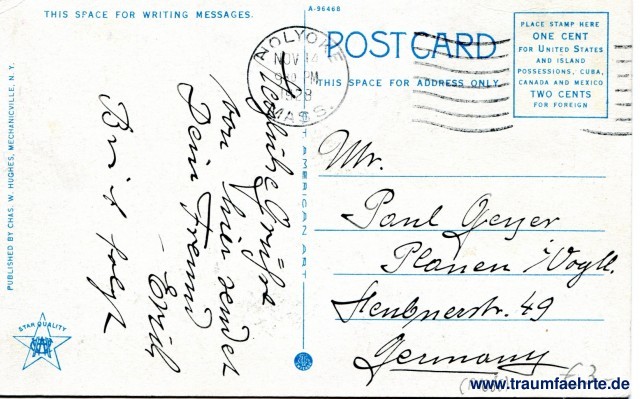 THIS SPACE FOR WRITING MESSAGES.
A-96468
POST CARD
THIS SPACE FOR ADDRESS ONLY.
PLACE STAMP HERE
ONE CENT
FOR UNITED STATES
AND ISLAND
POSSESSIONS, CUBA,
CANADA AND MEXICO
TWO CENTS
FOR FOREIGN
HOLYOKE
NOV 14
PM
1928
MASS.
Herzliche Grüße
von hier sendet
Dein Freund
- Erich
Brief folgt
Mr.
Paul Geyer
Plauen i/Vogtl.
Heubnerstr. 49
Germany
PUBLISHED BY CHAS. W. HUGHES, MECHANICVILLE, N. Y.
AMERICAN ART
STAR QUALITY
www.traumfaehrte.de